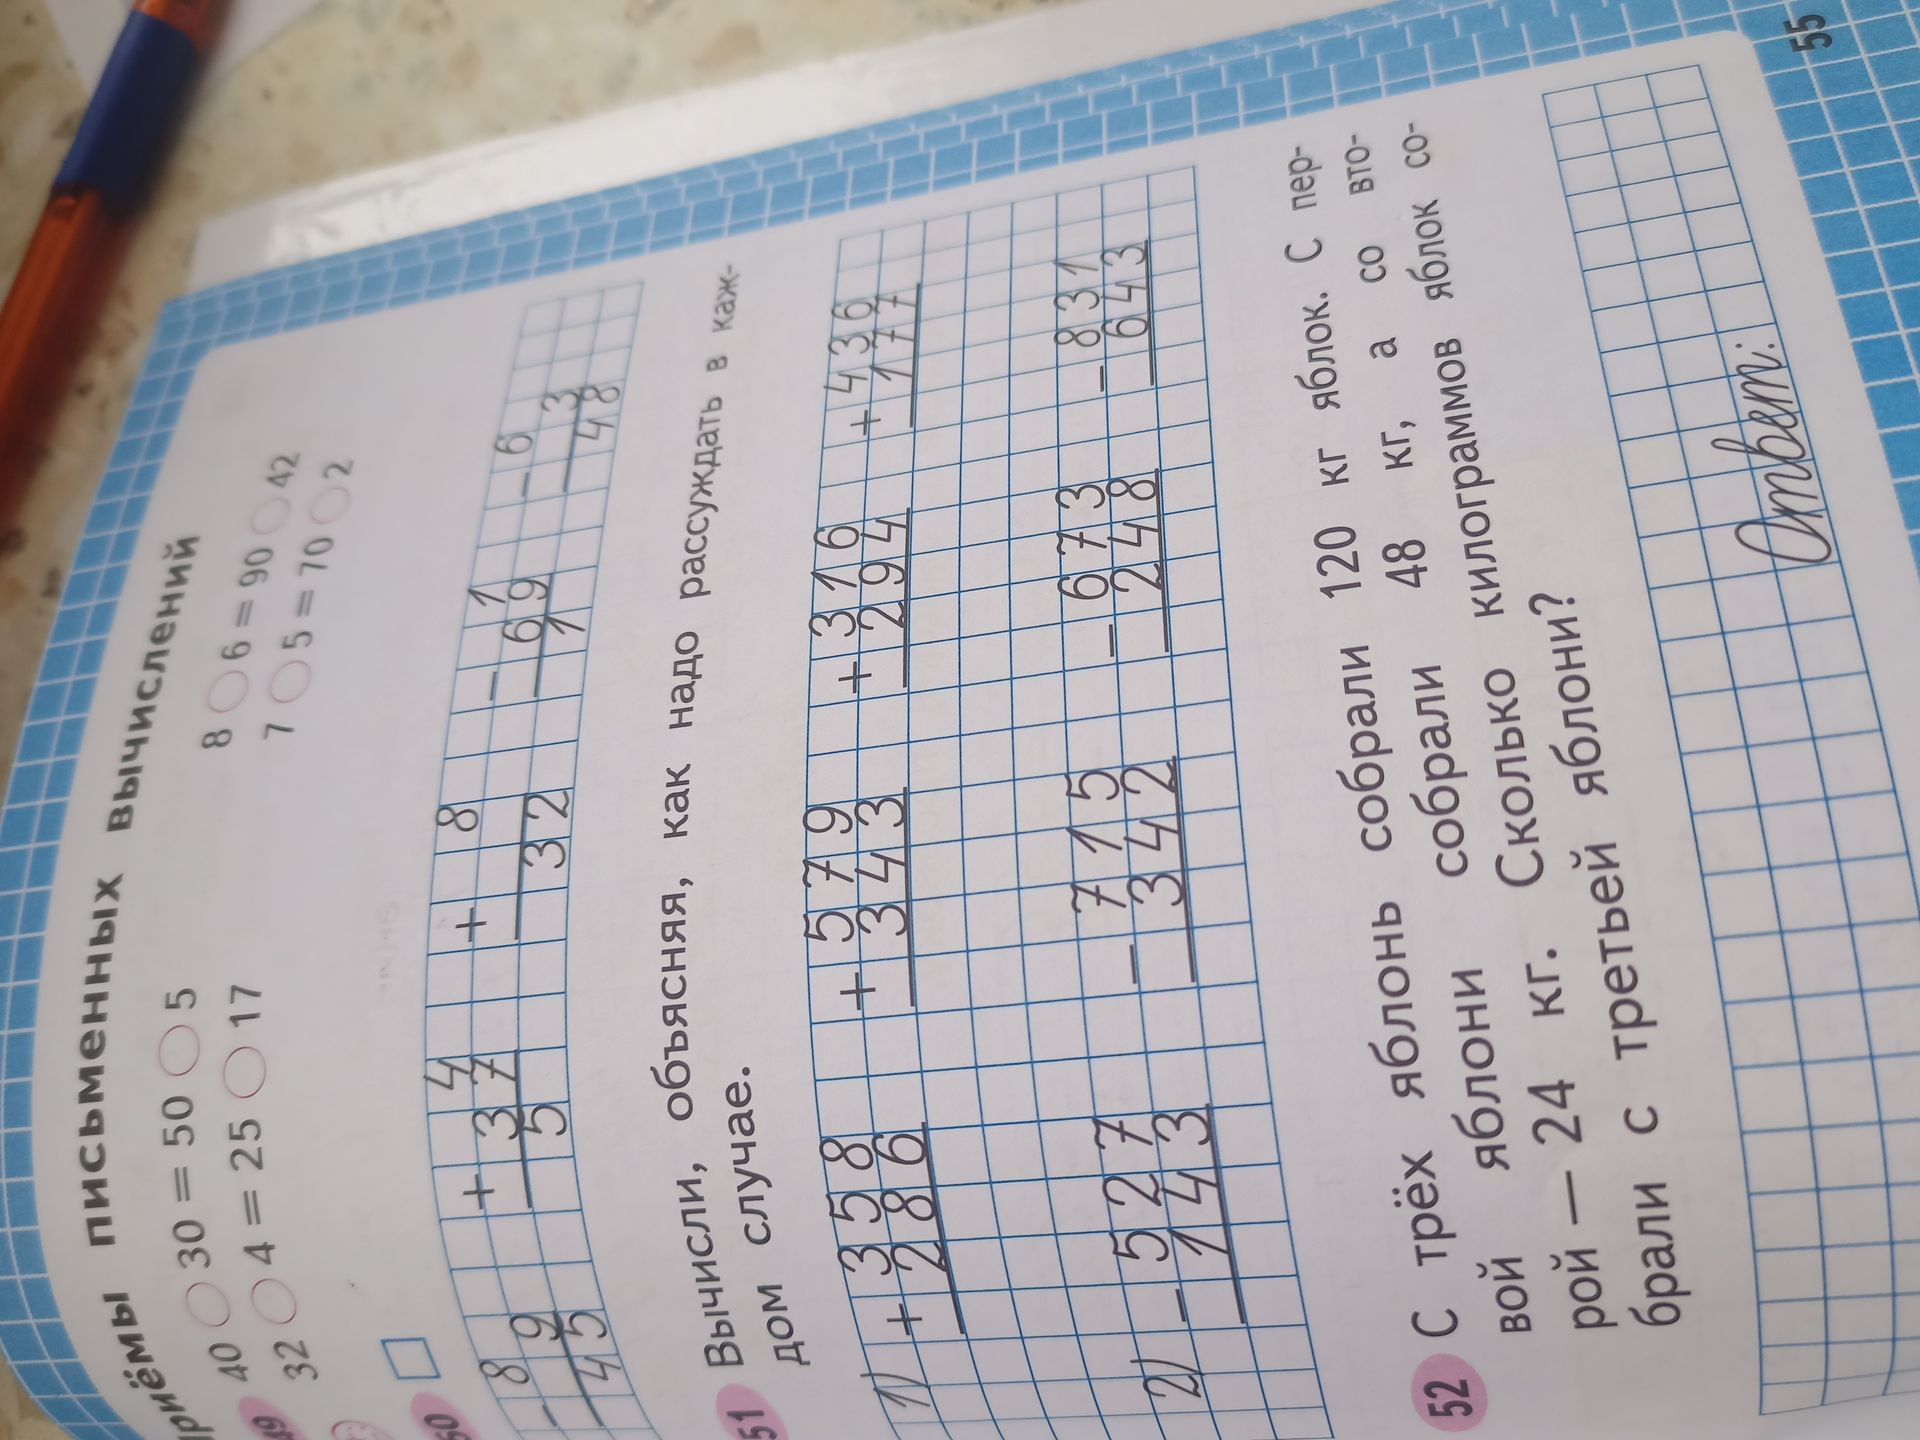 Приёмы письменных вычислений
49 40 ○ 30 = 50 ○ 5 8 ○ 6 = 90 ○ 42
32 ○ 4 = 25 ○ 17 7 ○ 5 = 70 ○ 2
50 □
− 8 + 4 + 8 − 1 − 6
9 37 69 3
45 5 32 1 48
51 Вычисли, объясняя, как надо рассуждать в каж-
дом случае.
1) + 358 + 579 + 316 + 436
286 343 294 177
2) − 527 − 715 − 673 − 831
143 342 248 643
52 С трёх яблонь собрали 120 кг яблок. С пер-
вой яблони собрали 48 кг, а со вто-
рой — 24 кг. Сколько килограммов яблок со-
брали с третьей яблони?
Ответ:
55